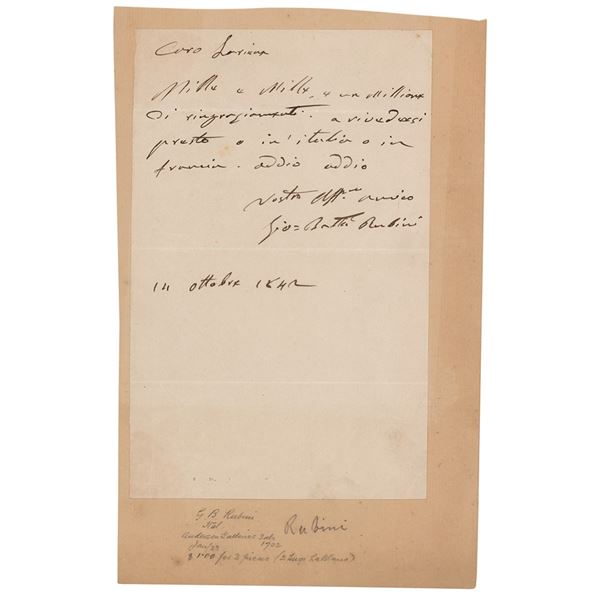 Caro
Mille e Mille, e un Millione
di ringraziamenti. a rivedersi
presto o in' italia o in
francia. addio addio
Vostro Aff.mo amico
Gio= Batta Rubini
14 ottobre 1842
G B Rubini
Rubini
Anderson Galleries Sale
Jan/29 1902
$1.00 for 2 pieces (2 Luigi Lablache)